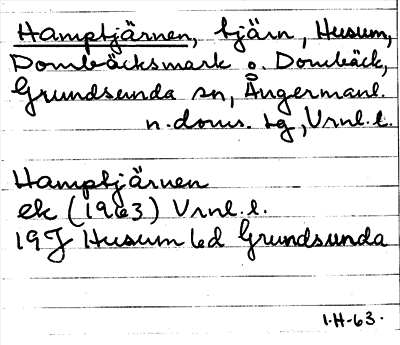 Hamptjärnen, tjärn, Husum,
Dombäcksmark o. Dombäck,
Grundsunda sn, Ångermanl.
n. doms. tg, Vrnl. l.
Hamptjärnen
ek (1963) Vrnl. l.
19J Husum 6d Grundsunda
1-H-63.